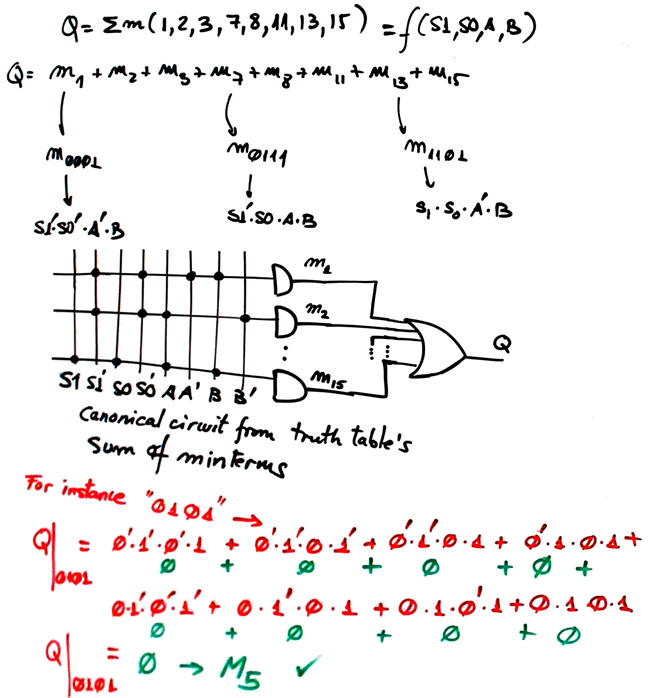 Q= Σm(1,2,3,7,8,11,13,15) = f(S1,S0,A,B)
Q= m1 + m2 + m3 + m7 + m8 + m11 + m13 + m15
m0001
m0111
m1101
S1'·S0'·A'·B
S1'·S0·A·B
S1·S0·A'·B
m1
m2
m15
Q
S1 S1' S0 S0' A A' B B'
Canonical circuit from truth table's
Sum of minterms
For instance "0101" →
Q|0101 = 0'·1'·0'·1 + 0'·1'·0·1' + 0'·1'·0·1 + 0'·1·0·1 +
0 + 0 + 0 + 0 +
0·1'·0'·1' + 0·1'·0·1 + 0·1·0'·1 + 0·1·0·1
0 + 0 + 0 + 0
Q|0101 = 0 → M5 ✓